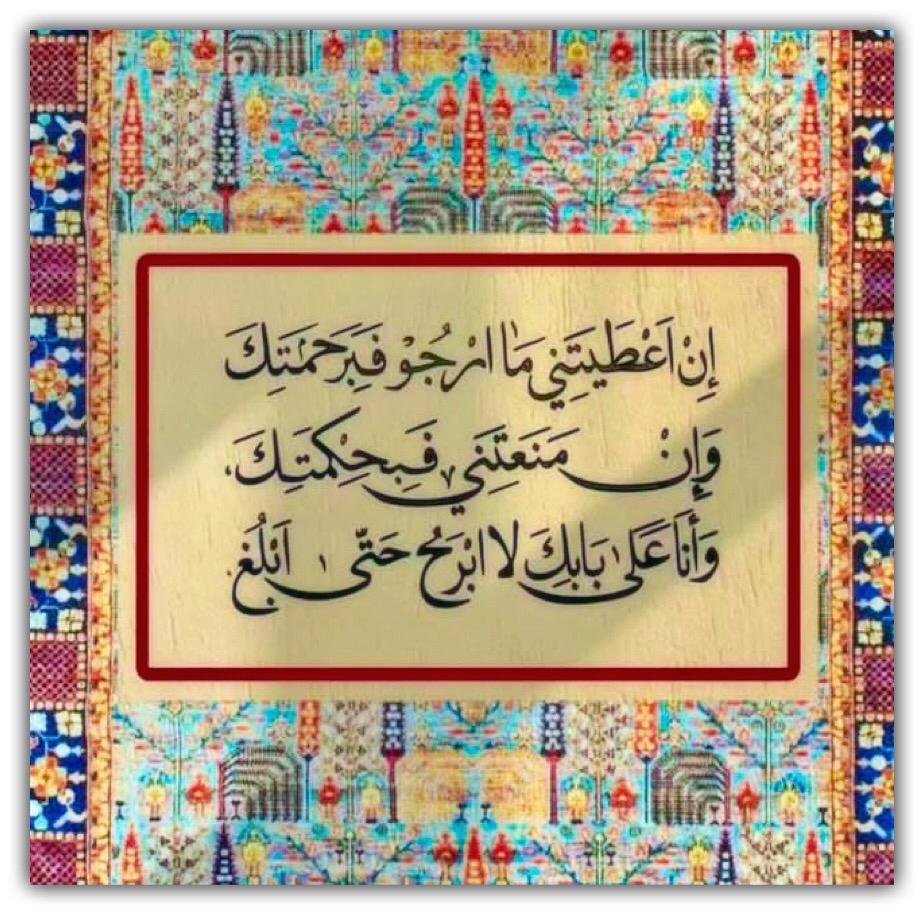 إِنْ اَعْطَيتَنِي مَا ارْجُوْ فَبِرَحمَتِكَ
وَإِنْ مَنَعتَنِي فَبِحِكمَتِكَ،
وَأَنَا عَلىٰ بَابِكَ لا ابْرَحُ حَتّى اَبْلُغ